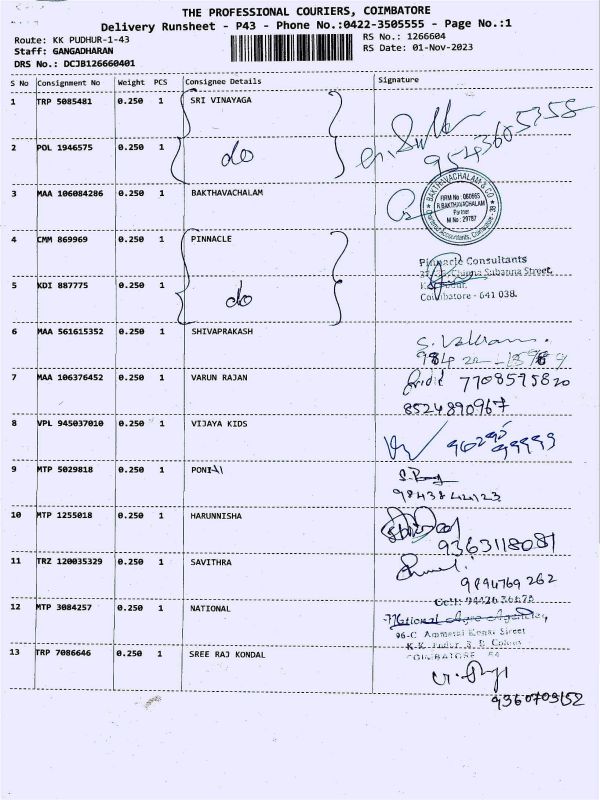 THE PROFESSIONAL COURIERS, COIMBATORE
Delivery Runsheet - P43 - Phone No.:0422-3505555 - Page No.:1
Route: KK PUDHUR-1-43
RS No.: 1266604
Staff: GANGADHARAN
RS Date: 01-Nov-2023
DRS No.: DCJB126660401
S No Consignment No Weight PCS Consignee Details Signature
1 TRP 5085481 0.250 1 SRI VINAYAGA
9543605358
2 POL 1946575 0.250 1 do
3 MAA 106084286 0.250 1 BAKTHAVACHALAM
BAKTHAVACHALAM & CO.
FIRM No : 060965
R.BAKTHAVACHALAM
Partner
M No : 29787
Chartered Accountants, Coimbatore
4 CMM 869969 0.250 1 PINNACLE
Pinnacle Consultants
Chinna Subanna Street
5 KDI 887775 0.250 1 do
Coimbatore - 641 038.
6 MAA 561615352 0.250 1 SHIVAPRAKASH
7 MAA 106376452 0.250 1 VARUN RAJAN
7708595820
8524890967
8 VPL 945037010 0.250 1 VIJAYA KIDS
9 MTP 5029818 0.250 1 PONI
9843844123
10 MTP 1255018 0.250 1 HARUNNISHA
9363118081
11 TRZ 120035329 0.250 1 SAVITHRA
9894769262
12 MTP 3084257 0.250 1 NATIONAL
National Agro Agencies,
96-C Ammasai Konar Street
COIMBATORE
13 TRP 7086646 0.250 1 SREE RAJ KONDAL
9360703152